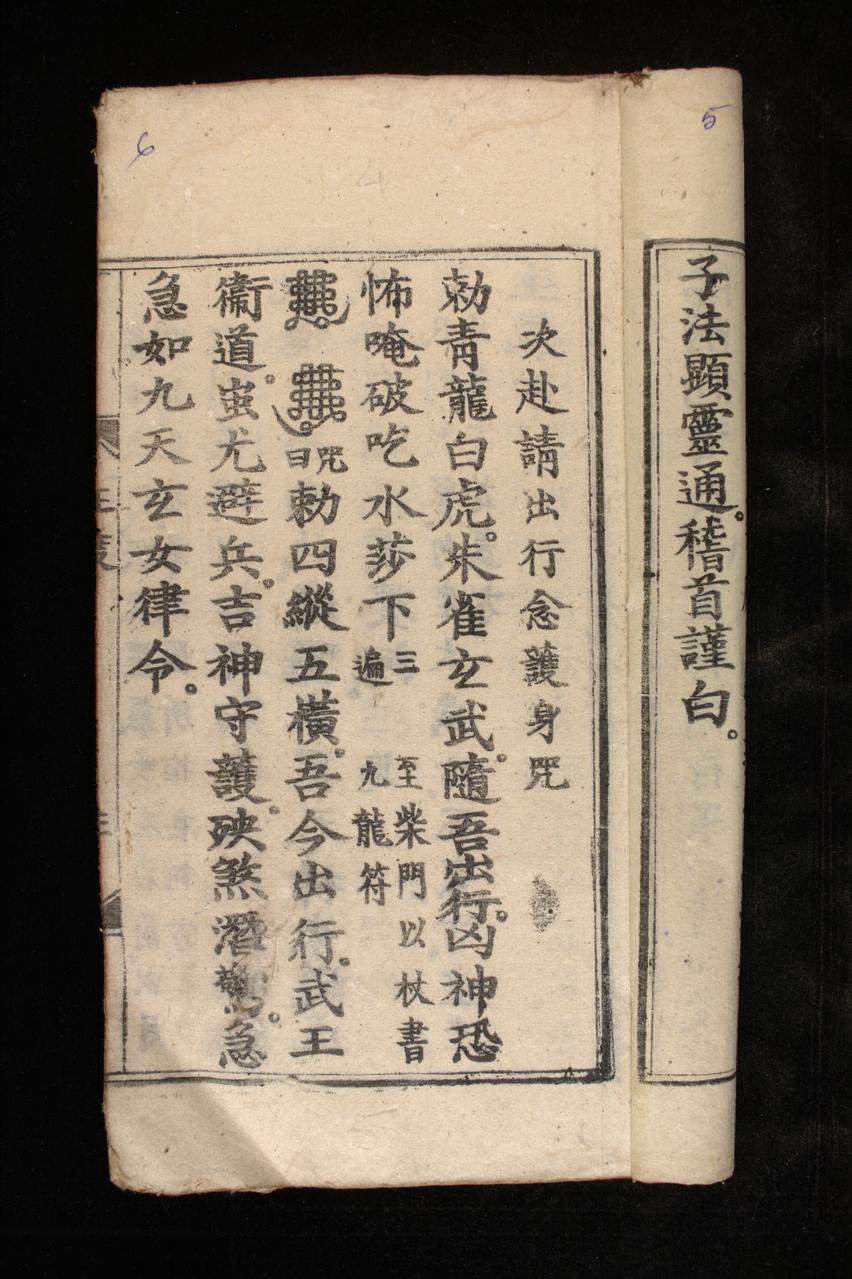 5
子法顯靈通。稽首謹白。
6
次赴請出行念護身咒
勅青龍白虎。朱雀玄武。隨吾出行。凶神恐
怖唵破吃水莎下三遍 至柴門以杖書九龍符
咒曰勅四縱五橫。吾今出行。武王
衞道。蚩尤避兵。吉神守護。殃煞潛。急
急如九天玄女律令。